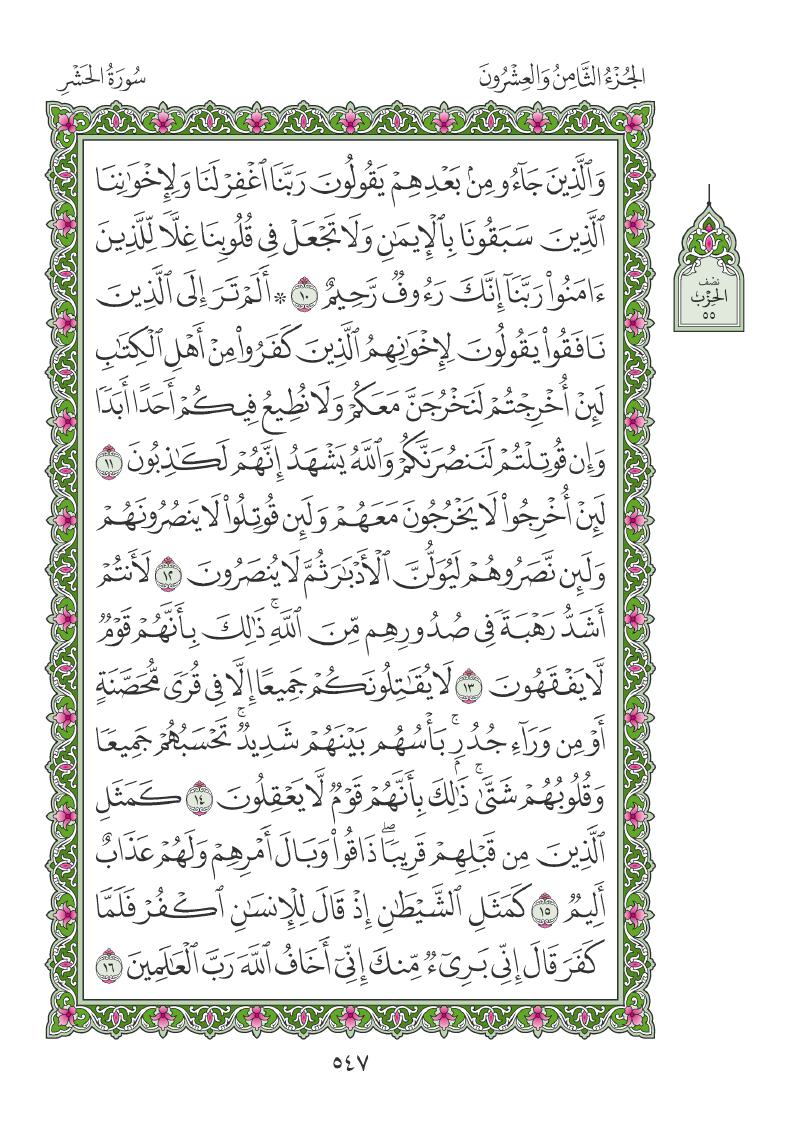 الجُزْءُ الثَّامِنُ وَالعِشْرُونَ
سُورَةُ الحَشْرِ
وَٱلَّذِينَ جَآءُو مِنۢ بَعْدِهِمْ يَقُولُونَ رَبَّنَا ٱغْفِرْ لَنَا وَلِإِخْوَٰنِنَا
ٱلَّذِينَ سَبَقُونَا بِٱلْإِيمَٰنِ وَلَا تَجْعَلْ فِى قُلُوبِنَا غِلًّا لِّلَّذِينَ
ءَامَنُوا۟ رَبَّنَآ إِنَّكَ رَءُوفٌ رَّحِيمٌ ١٠ * أَلَمْ تَرَ إِلَى ٱلَّذِينَ
نَافَقُوا۟ يَقُولُونَ لِإِخْوَٰنِهِمُ ٱلَّذِينَ كَفَرُوا۟ مِنْ أَهْلِ ٱلْكِتَٰبِ
لَئِنْ أُخْرِجْتُمْ لَنَخْرُجَنَّ مَعَكُمْ وَلَا نُطِيعُ فِيكُمْ أَحَدًا أَبَدًا
وَإِن قُوتِلْتُمْ لَنَنصُرَنَّكُمْ وَٱللَّهُ يَشْهَدُ إِنَّهُمْ لَكَٰذِبُونَ ١١
لَئِنْ أُخْرِجُوا۟ لَا يَخْرُجُونَ مَعَهُمْ وَلَئِن قُوتِلُوا۟ لَا يَنصُرُونَهُمْ
وَلَئِن نَّصَرُوهُمْ لَيُوَلُّنَّ ٱلْأَدْبَٰرَ ثُمَّ لَا يُنصَرُونَ ١٢ لَأَنتُمْ
أَشَدُّ رَهْبَةً فِى صُدُورِهِم مِّنَ ٱللَّهِ ۚ ذَٰلِكَ بِأَنَّهُمْ قَوْمٌ
لَّا يَفْقَهُونَ ١٣ لَا يُقَٰتِلُونَكُمْ جَمِيعًا إِلَّا فِى قُرًى مُّحَصَّنَةٍ
أَوْ مِن وَرَآءِ جُدُرٍۭ ۚ بَأْسُهُم بَيْنَهُمْ شَدِيدٌ ۚ تَحْسَبُهُمْ جَمِيعًا
وَقُلُوبُهُمْ شَتَّىٰ ۚ ذَٰلِكَ بِأَنَّهُمْ قَوْمٌ لَّا يَعْقِلُونَ ١٤ كَمَثَلِ
ٱلَّذِينَ مِن قَبْلِهِمْ قَرِيبًا ۖ ذَاقُوا۟ وَبَالَ أَمْرِهِمْ وَلَهُمْ عَذَابٌ
أَلِيمٌ ١٥ كَمَثَلِ ٱلشَّيْطَٰنِ إِذْ قَالَ لِلْإِنسَٰنِ ٱكْفُرْ فَلَمَّا
كَفَرَ قَالَ إِنِّى بَرِىٓءٌ مِّنكَ إِنِّىٓ أَخَافُ ٱللَّهَ رَبَّ ٱلْعَٰلَمِينَ ١٦
نصف
الحِزْب
٥٥
٥٤٧